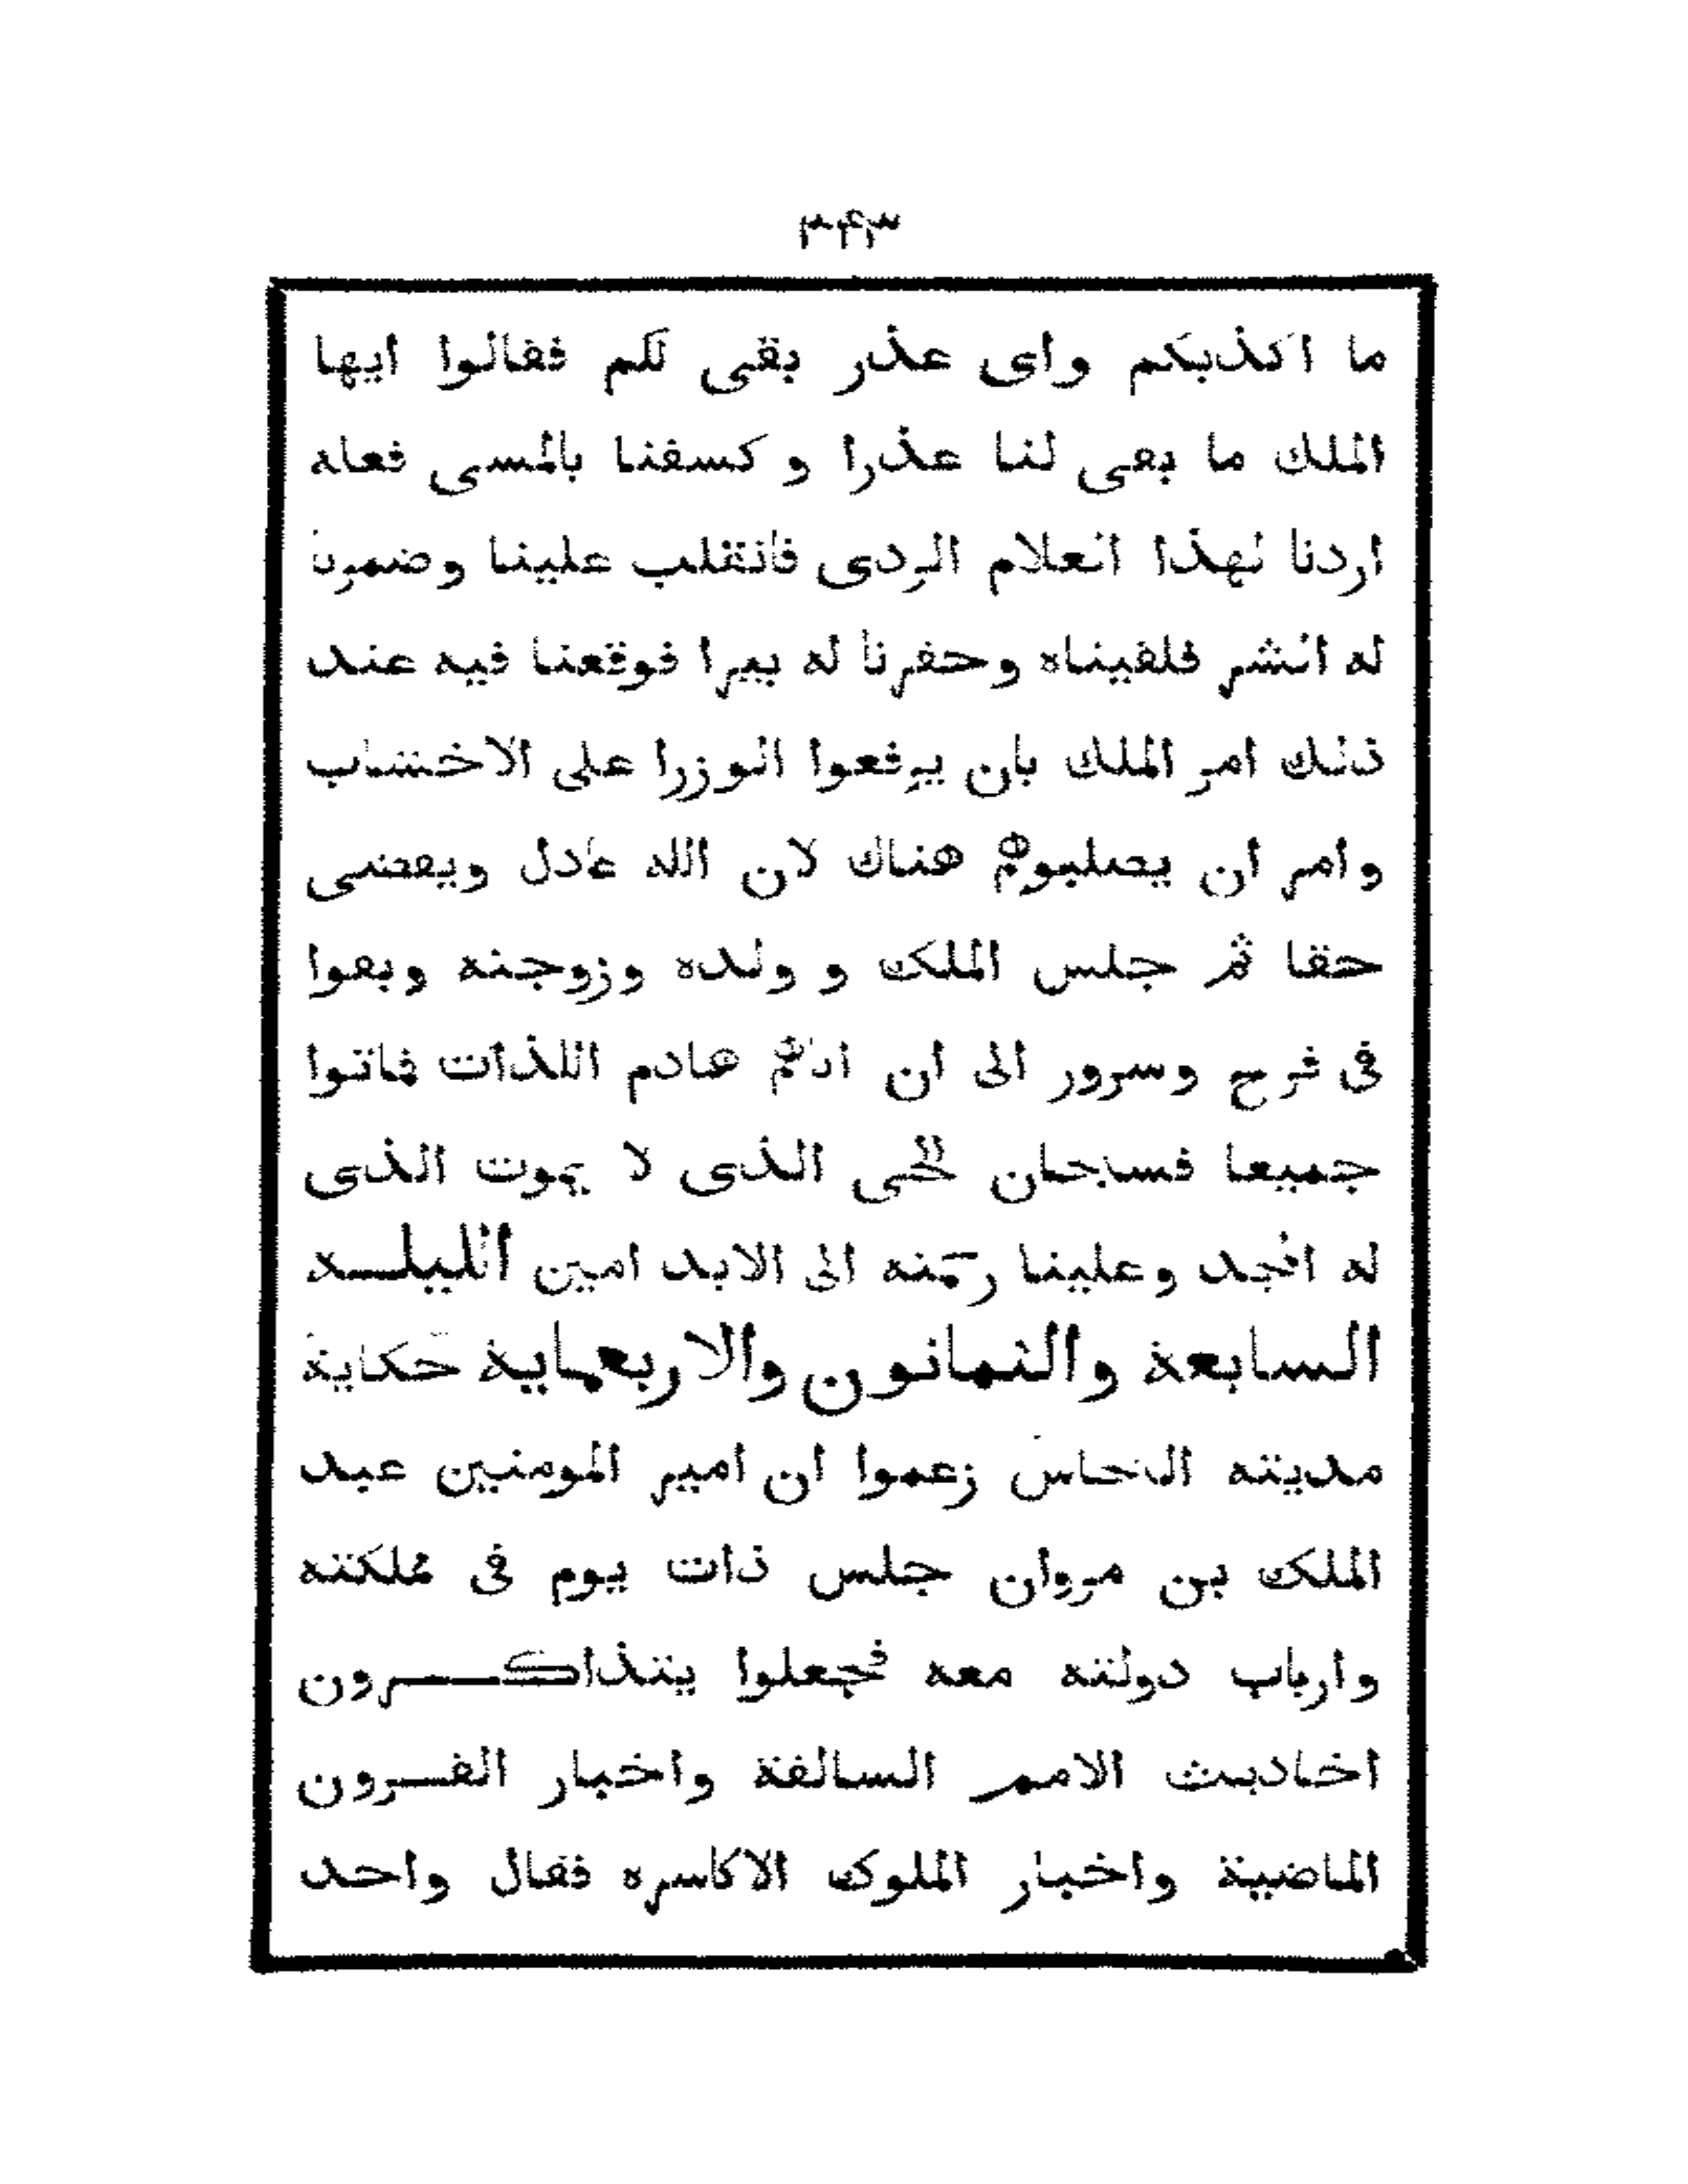 ٣۴٣
ما اكذبكم واى عذر بقى لكم فقالوا ايها
الملك ما بقى لنا عذرا و كسفنا بالمسى فعله
اردنا لهذا الغلام الردى فانتقلب علينا وضمرنا
له الشر فلقيناه وحفرنا له بيرا فوقعنا فيه عند
ذلك امر الملك بان يرفعوا الوزرا على الاخشاب
وامر ان يصلبوهم هناك لان الله عادل ويقضى
حقا ثم جلس الملك و ولده وزوجته وبقوا
فى فرح وسرور الى ان اتاهم هادم اللذات فاتوا
جميعا فسبحان الحى الذى لا يموت الذى
له المجد وعلينا رحمته الى الابد امين الليلـه
السابعة والثمانون والاربعماية حكاية
مدينته النحاس زعموا ان امير المومنين عبد
الملك بن مروان جلس ذات يوم فى مملكته
وارباب دولته معه فجعلوا يتذاكـرون
احاديث الامم السالفة واخبار القـرون
الماضية واخبار الملوك الاكاسره فقال واحد